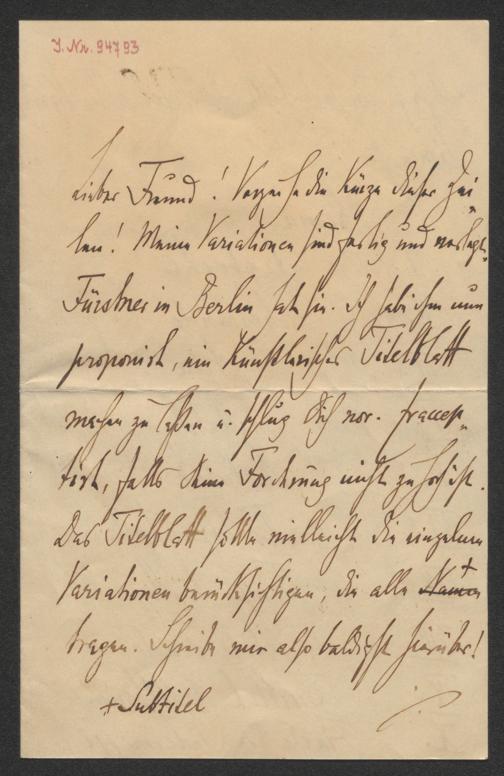 J. Nr. 94793
Lieber Freund! Verzeihe die Kürze dieser Zei-
len! Meine Variationen sind fertig und verlegt.
Fürstner in Berlin hat sie. Ich habe ihm nun
proponirt, ein künstlerisches Titelblatt
machen zu lassen u. schlug Dich vor. Er accep-
tirt, falls Deine Forderung nicht zu hoch ist.
Das Titelblatt sollte vielleicht die einzelnen
Variationen berücksichtigen, die alle Namen +
tragen. Schreibe mir also baldigst hierüber!
+ Subtitel